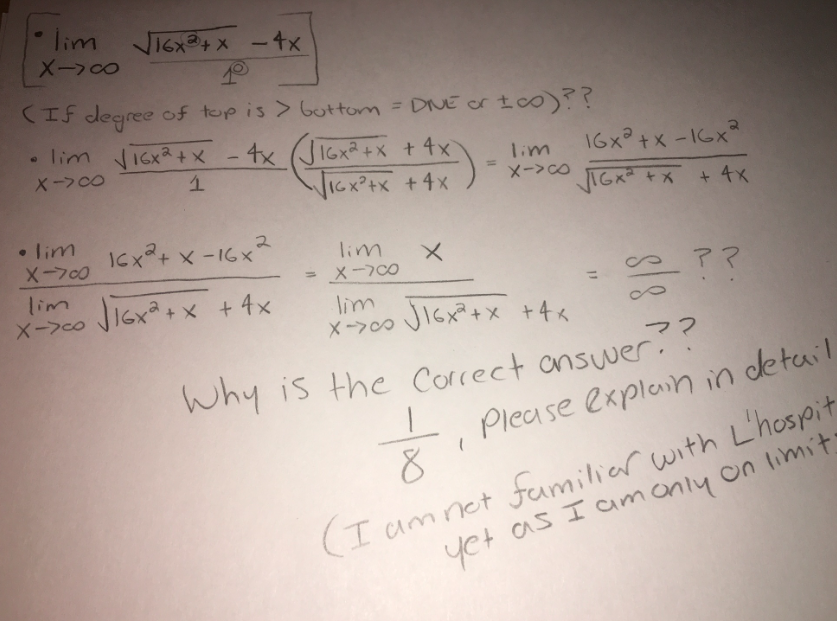 • lim x→∞ √(16x²+x) - 4x / 1⁰
(If degree of top is > bottom = DNE or ±∞)??
• lim x→∞ √(16x²+x) - 4x / 1 (√(16x²+x) + 4x / √(16x²+x) + 4x) = lim x→∞ 16x²+x-16x² / √(16x²+x) + 4x
• lim x→∞ 16x²+x-16x² / lim x→∞ √(16x²+x) + 4x = lim x→∞ x / lim x→∞ √(16x²+x) + 4x = ∞/∞ ??
Why is the correct answer??
1/8, Please explain in detail
(I am not familiar with L'hospit
yet as I am only on limit